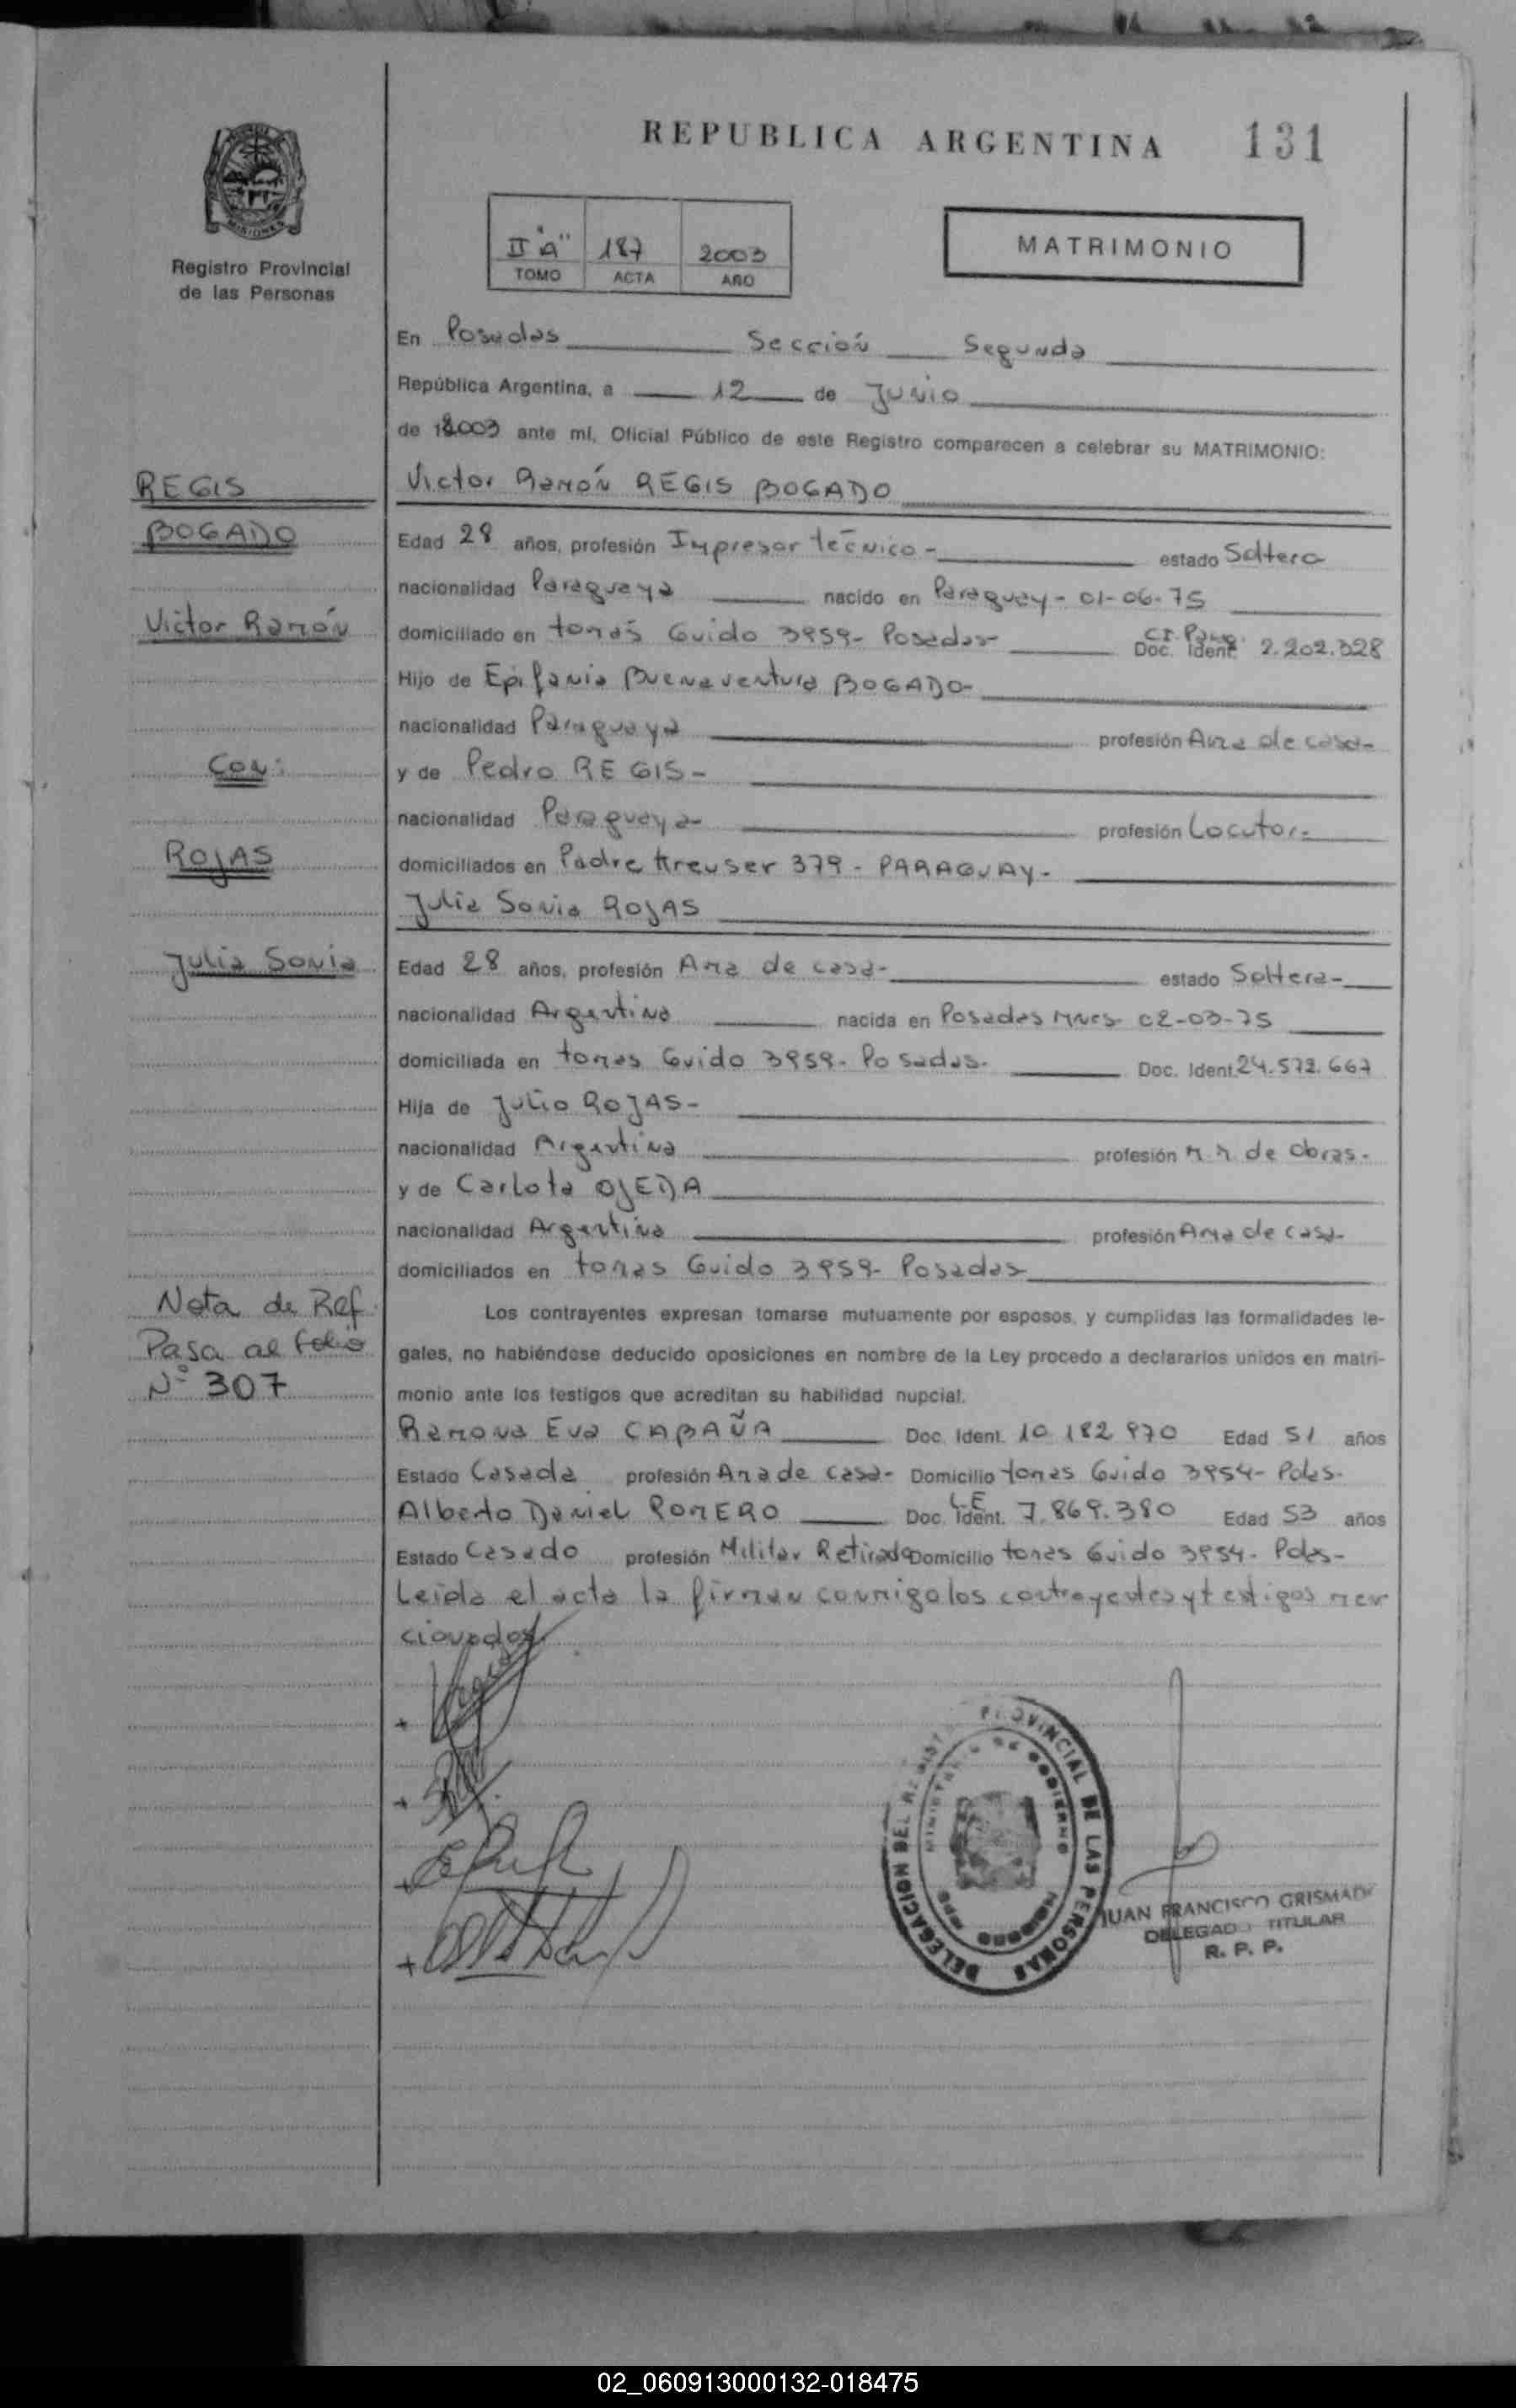 REPUBLICA ARGENTINA 131
MISIONES
Registro Provincial
de las Personas
II "A" 187 2003
TOMO ACTA AÑO
MATRIMONIO
En Posadas Sección Segunda
República Argentina, a 12 de Junio
de 2003 ante mí, Oficial Público de este Registro comparecen a celebrar su MATRIMONIO:
REGIS
BOGADO
Victor Ramón
Con:
ROJAS
Julia Sonia
Nota de Ref.
Pasa al folio
Nº 307
Victor Ramón REGIS BOGADO
Edad 28 años, profesión Impresor técnico - estado Soltero
nacionalidad Paraguaya nacido en Paraguay - 01-06-75
domiciliado en tomás Guido 3959- Posadas- CI. Parag. Doc. Ident. 2.202.328
Hijo de Epifania Buenaventura BOGADO-
nacionalidad Paraguaya profesión Ama de casa-
y de Pedro REGIS-
nacionalidad Paraguaya- profesión Locutor-
domiciliados en Padre Kreuser 379 - PARAGUAY-
Julia Sonia ROJAS
Edad 28 años, profesión Ama de casa- estado Soltera-
nacionalidad Argentina nacida en Posadas Mnes- 02-03-75
domiciliada en tomas Guido 3959- Posadas- Doc. Ident. 24.572.667
Hija de Julio ROJAS-
nacionalidad Argentina profesión M. M. de Obras-
y de Carlota OJEDA
nacionalidad Argentina profesión Ama de casa-
domiciliados en tomas Guido 3959- Posadas
Los contrayentes expresan tomarse mutuamente por esposos, y cumplidas las formalidades le-
gales, no habiéndose deducido oposiciones en nombre de la Ley procedo a declararlos unidos en matri-
monio ante los testigos que acreditan su habilidad nupcial.
Ramona Eva CABAÑA Doc. Ident. 10.182.970 Edad 51 años
Estado Casada profesión Ama de casa- Domicilio tomas Guido 3954- Pdas-
Alberto Daniel ROMERO L.E Doc. Ident. 7.869.380 Edad 53 años
Estado Casado profesión Militar Retirado Domicilio tomas Guido 3954- Pdas-
Leida el acta la firman conmigo los contrayentes y testigos men
cionados.
DELEGACION DEL REGISTRO PROVINCIAL DE LAS PERSONAS
MINISTERIO DE GOBIERNO
JUAN FRANCISCO GRISMADO
DELEGADO TITULAR
R. P. P.
02_060913000132-018475